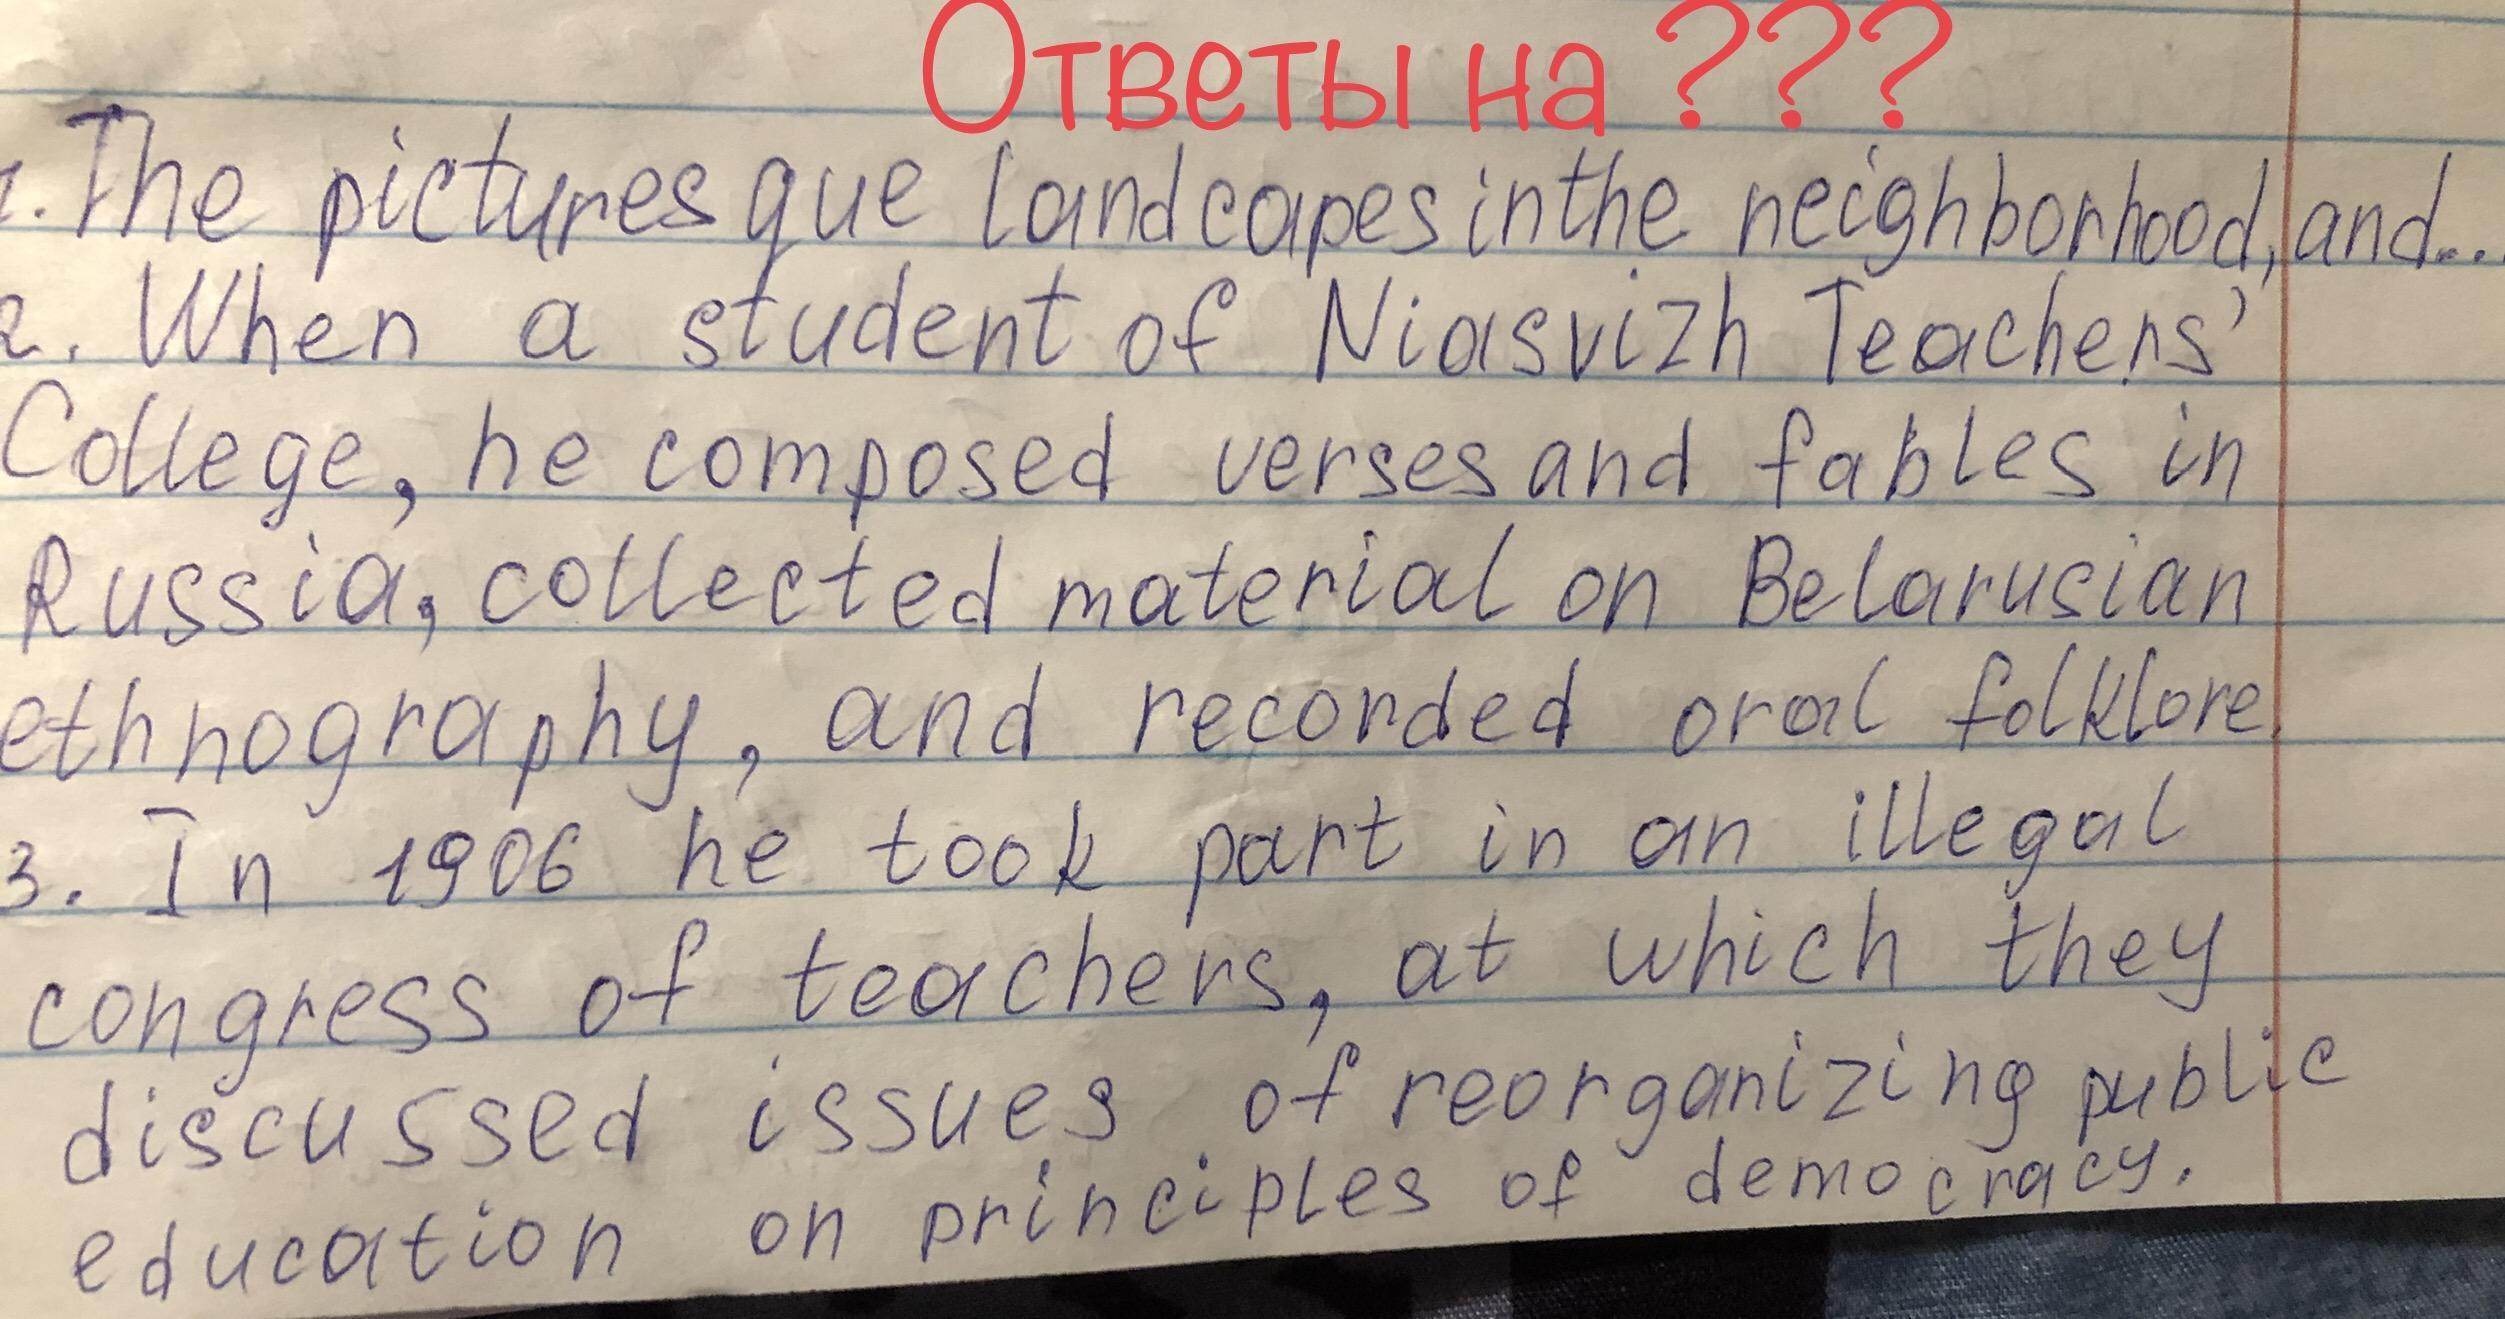 Ответы на ???
1. The picturesque landcapes in the neighborhood, and...
2. When a student of Niasvizh Teachers'
College, he composed verses and fables in
Russia, collected material on Belarusian
ethnography, and recorded oral folklore.
3. In 1906 he took part in an illegal
congress of teachers, at which they
discussed issues of reorganizing public
education on principles of democracy.